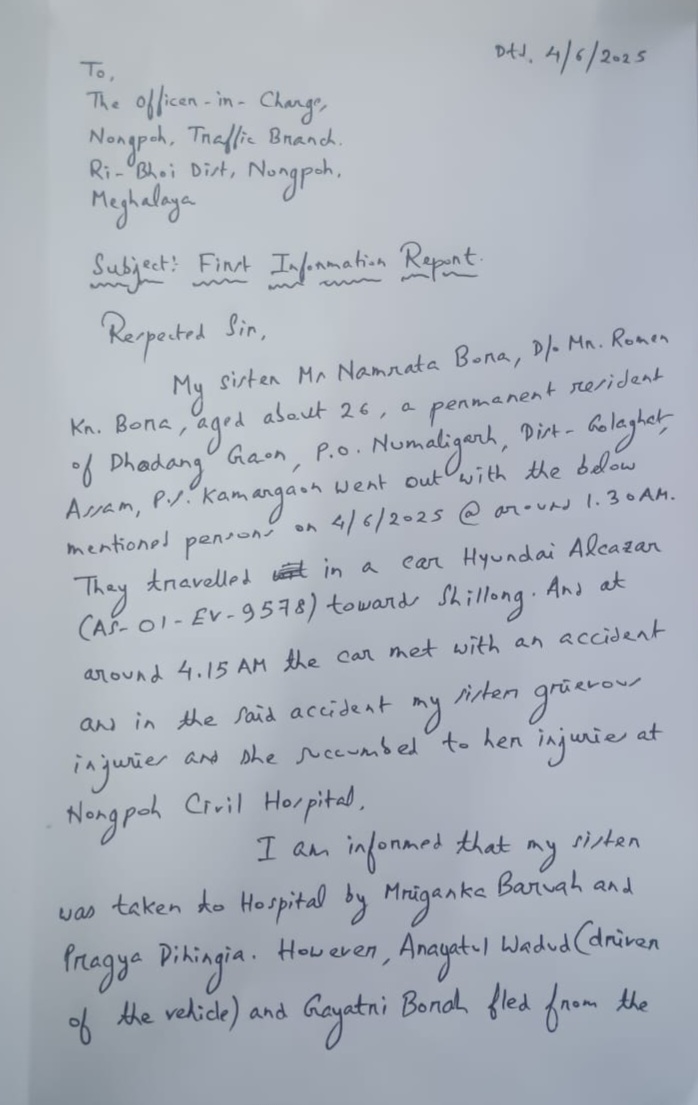 Dtd. 4/6/2025
To,
The Officer-in-Charge,
Nongpoh, Traffic Branch.
Ri-Bhoi Dist, Nongpoh,
Meghalaya
Subject: First Information Report.
Respected Sir,
My sister Ms Namrata Bora, D/o Mr. Romen
Kr. Bora, aged about 26, a permanent resident
of Dhodang Gaon, P.O. Numaligarh, Dist- Golaghat,
Assam, P.S. Kamargaon went out with the below
mentioned persons on 4/6/2025 @ around 1.30AM.
They travelled in a car Hyundai Alcazar
(AS-01-EV-9578) towards Shillong. And at
around 4.15 AM the car met with an accident
and in the said accident my sister grievous
injuries and she succumbed to her injurie at
Nongpoh Civil Hospital.
I am informed that my sister
was taken to Hospital by Mriganka Baruah and
Pragya Dihingia. However, Anayatul Wadud (driver
of the vehicle) and Gayatri Borah fled from the